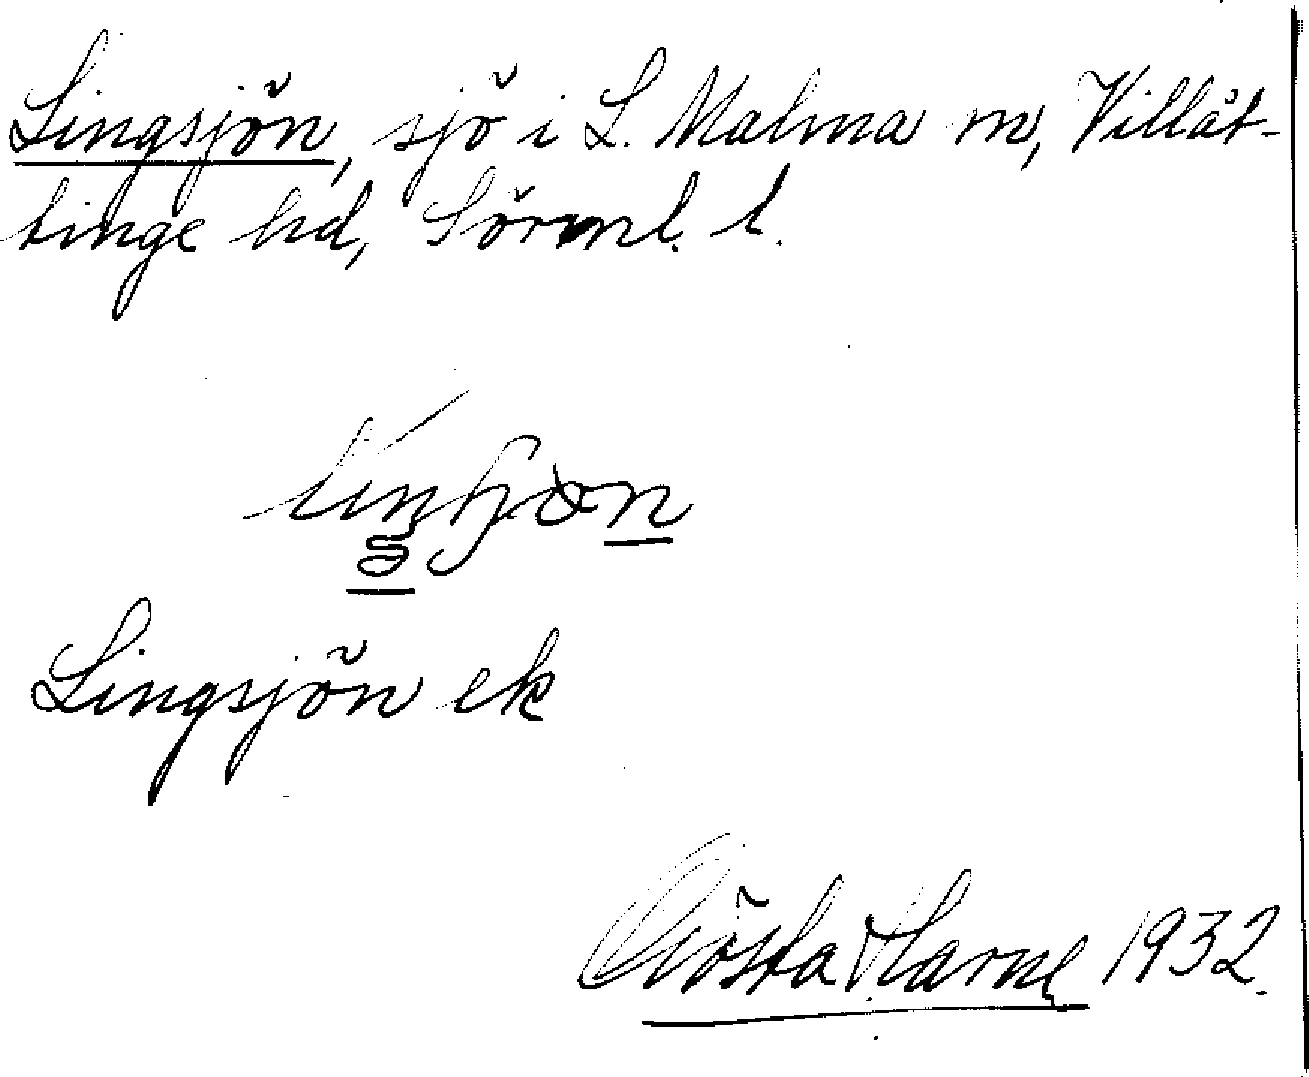 Lingsjön, sjö i L. Malma sn, Villåt-
tinge hd, Sörml. l.
Lingsjön ek
Gösta Harne 1932.